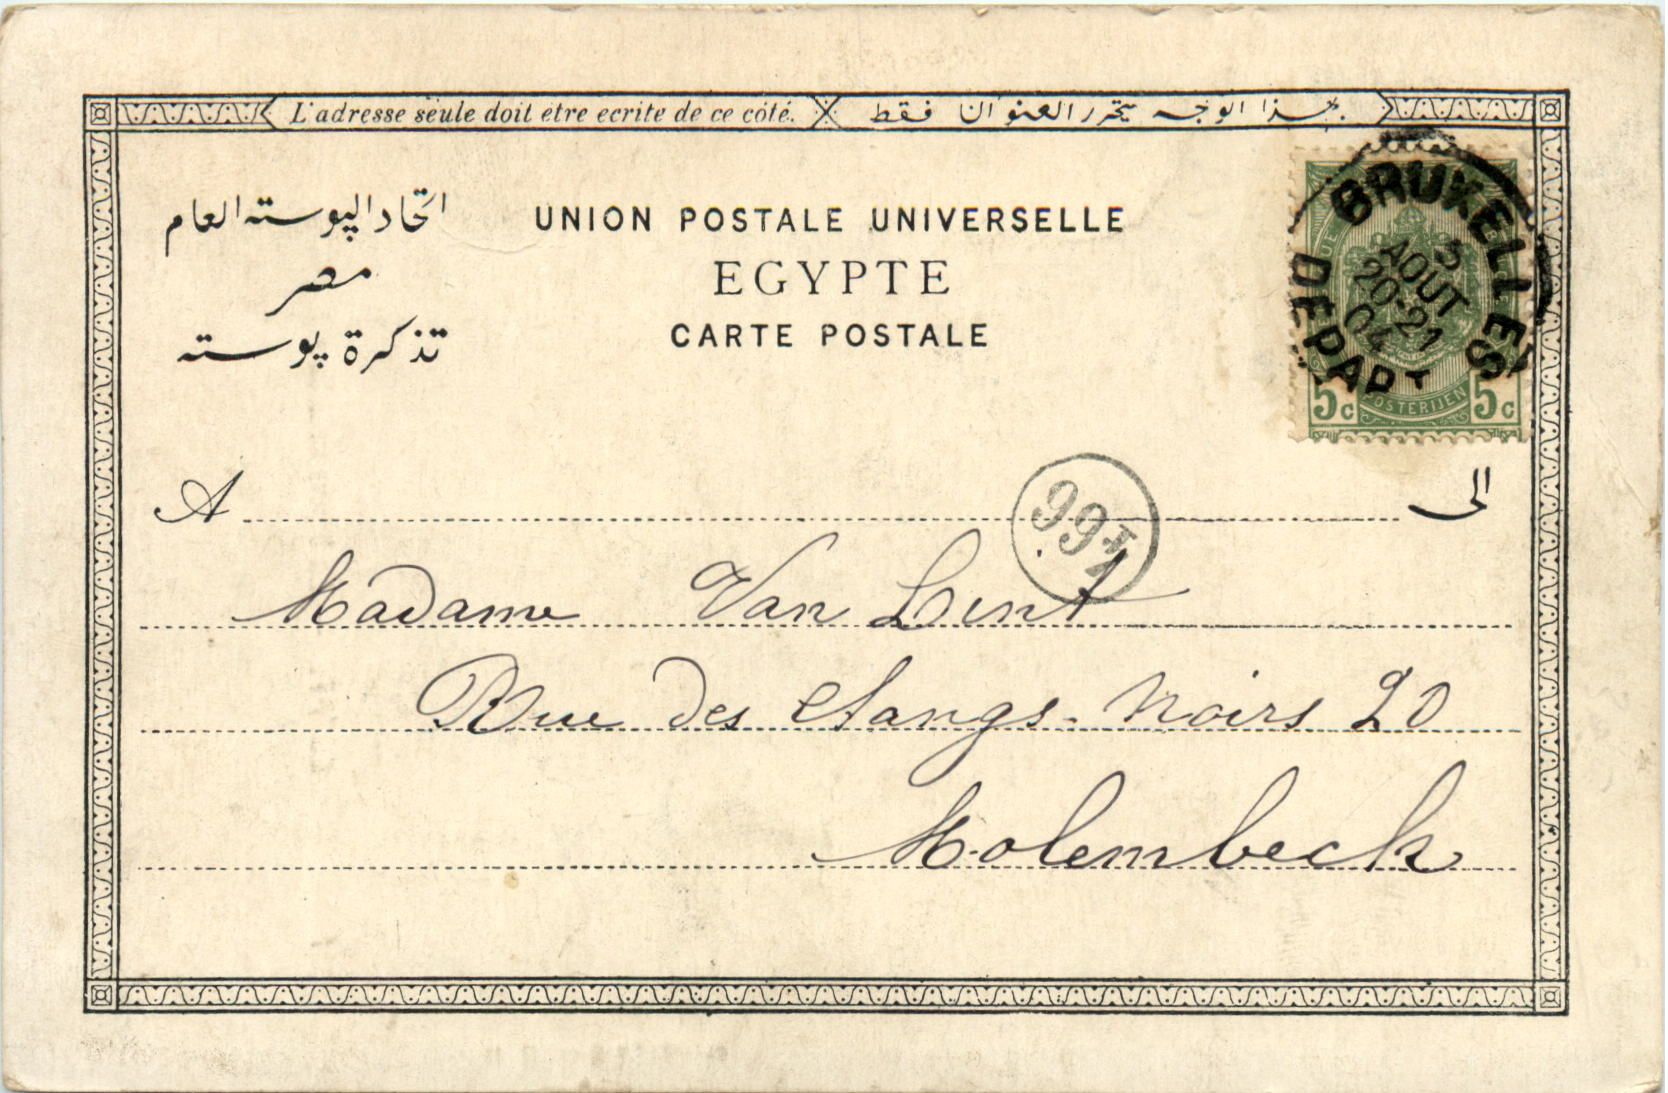 L'adresse seule doit être ecrite de ce côté. هذا الوجه يتحرر العنوان فقط
اتحاد البوسته العام
مصر
تذكرة بوسته
UNION POSTALE UNIVERSELLE
EGYPTE
CARTE POSTALE
BRUXELLES
3
AOUT
20-21
04
DEPART
5c OSTERIJEN 5c
A الى
Madame Van Lint
Rue des Etangs-Noirs 20
Molenbeck